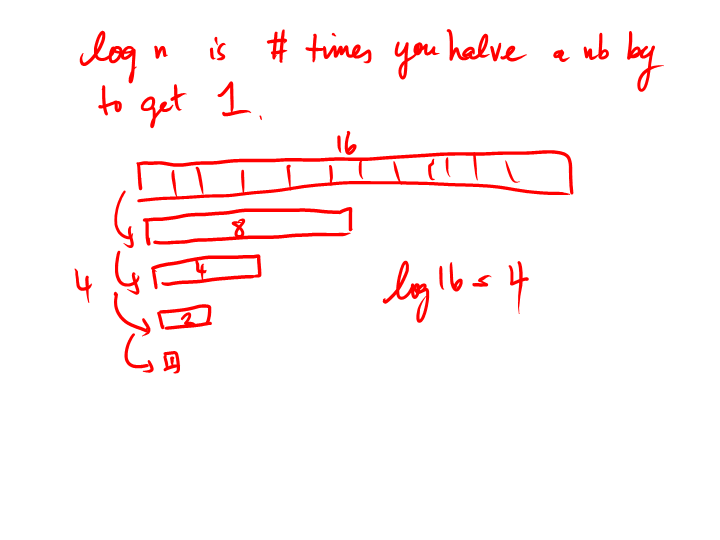 log n is # times you halve a nb by
to get 1.
16
8
4
4
2
1
log 16 = 4